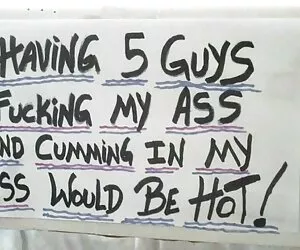 HAVING 5 GUYS
FUCKING MY ASS
ND CUMMING IN MY
SS WOULD BE HOT!